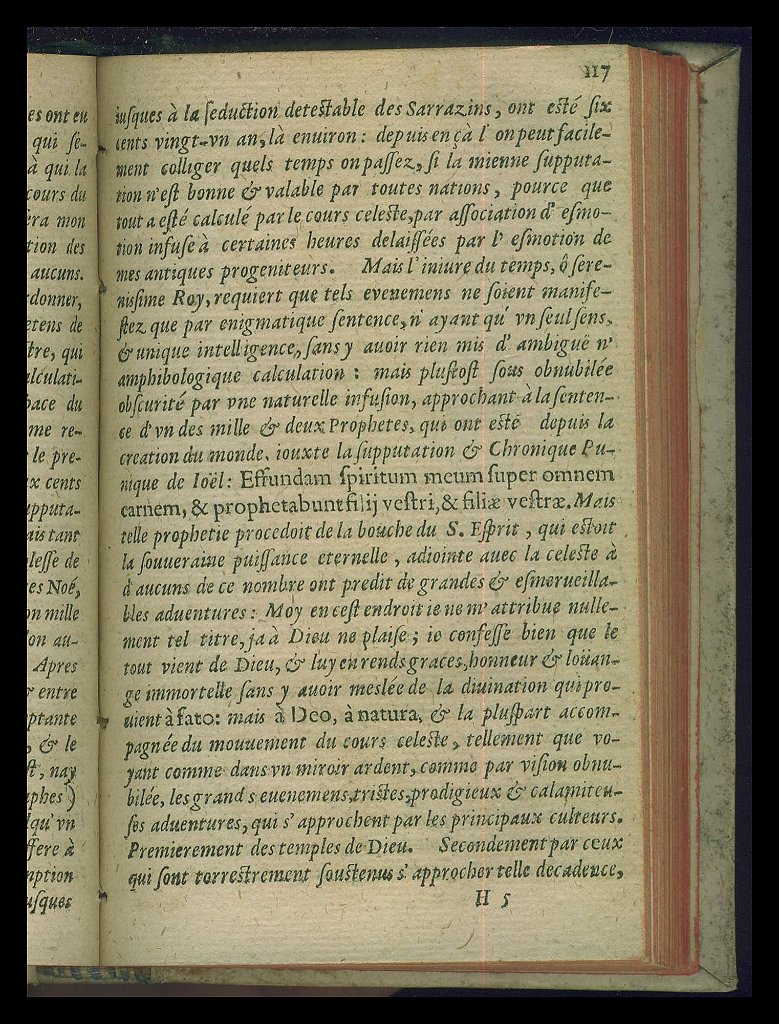 es ont eu
qui se-
à qui la
cours du
era mon
tion des
aucuns.
rdonner,
etens de
tre, qui
alculati-
pace du
me re-
le pre-
x cents
upputa-
ais tant
lesse de
es Noé,
on mille
on au-
Apres
& entre
ptante
, & le
st, nay
phes)
qu'vn
ffere à
nption
usques
117
iusques à la seduction detestable des Sarrazins, ont esté six
cents vingt-vn an, là enuiron: depuis en çà l'on peut facile-
ment colliger quels temps on passez, si la mienne supputa-
tion n'est bonne & valable par toutes nations, pource que
tout a esté calculé par le cours celeste, par association d'esmo-
tion infuse à certaines heures delaissées par l'esmotion de
mes antiques progeniteurs. Mais l'iniure du temps, ô sere-
nisime Roy, requiert que tels evenemens ne soient manife-
stez que par enigmatique sentence, n'ayant qu'vn seul sens,
& unique intelligence, sans y auoir rien mis d'ambigue n'
amphibologique calculation: mais plustost sous obnubilée
obscurité par vne naturelle infusion, approchant à la senten-
ce d'vn des mille & deux Prophetes, qui ont esté depuis la
creation du monde. iouxte la supputation & Chronique Pu-
nique de Ioël: Effundam spiritum meum super omnem
carnem, & prophetabunt filij vestri, & filiæ vestræ. Mais
telle prophetie procedoit de la bouche du S. Esprit, qui estoit
la souueraine puissance eternelle, adiointe auec la celeste à
d'aucuns de ce nombre ont predit de grandes & esmerueilla-
bles aduentures: Moy en cest endroit ie ne m'attribue nulle-
ment tel titre, ja à Dieu ne plaise; ie confesse bien que le
tout vient de Dieu, & luy en rends graces, honneur & loüan-
ge immortelle sans y auoir meslée de la diuination qui pro-
uient à fato: mais à Deo, à natura, & la pluspart accom-
pagnée du mouuement du cours celeste, tellement que vo-
yant comme dans vn miroir ardent, comme par vision obnu-
bilée, les grands euenemens, tristes, prodigieux & calamiteu-
ses aduentures, qui s'approchent par les principaux culteurs.
Premierement des temples de Dieu. Secondement par ceux
qui sont terrestrement soustenus s'approcher telle decadence,
H 5